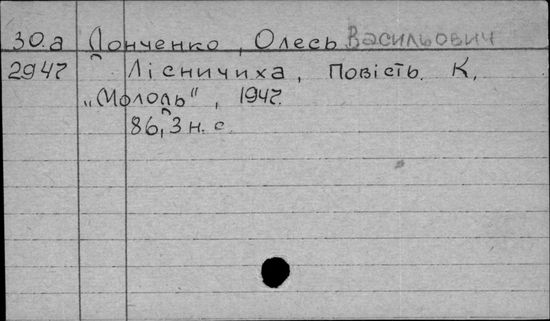 30.а Донченко, Олесь Васильович
2947 Лісничиха, Повість. К.
„Молодь", 1947.
86, 3 н. с.